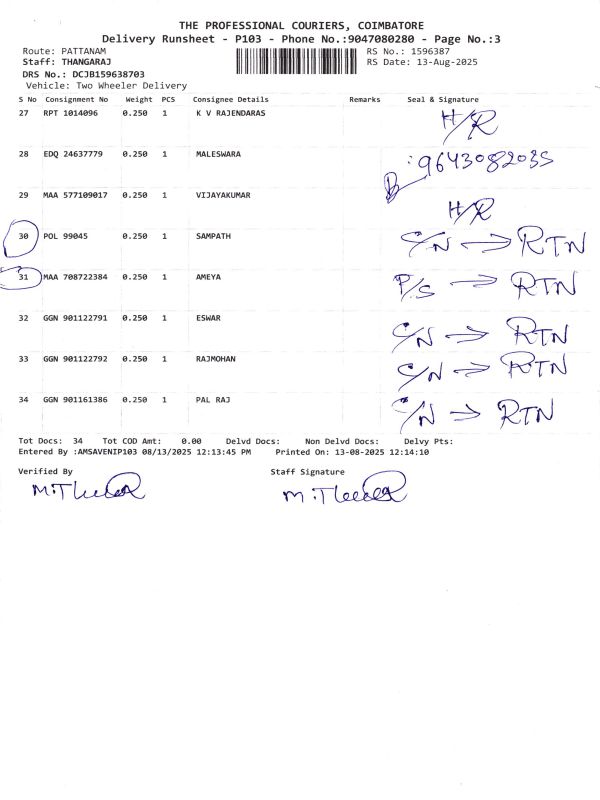 THE PROFESSIONAL COURIERS, COIMBATORE
Delivery Runsheet - P103 - Phone No.:9047080280 - Page No.:3
Route: PATTANAM RS No.: 1596387
Staff: THANGARAJ RS Date: 13-Aug-2025
DRS No.: DCJB159638703
Vehicle: Two Wheeler Delivery
S No Consignment No Weight PCS Consignee Details Remarks Seal & Signature
27 RPT 1014096 0.250 1 K V RAJENDARAS H/R
28 EDQ 24637779 0.250 1 MALESWARA :9643082035
29 MAA 577109017 0.250 1 VIJAYAKUMAR H/R
30 POL 99045 0.250 1 SAMPATH C/N → RTN
31 MAA 708722384 0.250 1 AMEYA P/S → RTN
32 GGN 901122791 0.250 1 ESWAR C/N → RTN
33 GGN 901122792 0.250 1 RAJMOHAN C/N → RTN
34 GGN 901161386 0.250 1 PAL RAJ C/N → RTN
Tot Docs: 34 Tot COD Amt: 0.00 Delvd Docs: Non Delvd Docs: Delvy Pts:
Entered By :AMSAVENIP103 08/13/2025 12:13:45 PM Printed On: 13-08-2025 12:14:10
Verified By Staff Signature